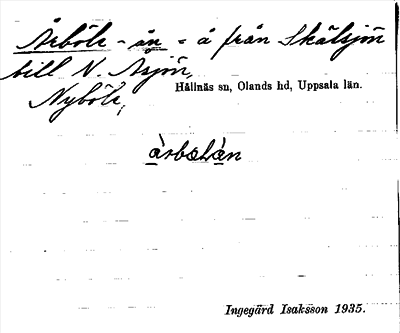 Årböle-ån = å från Skälsjön
till N. Åsjön,
Nyböle,
Hållnäs sn, Olands hd, Uppsala län.
Ingegärd Isaksson 1935.